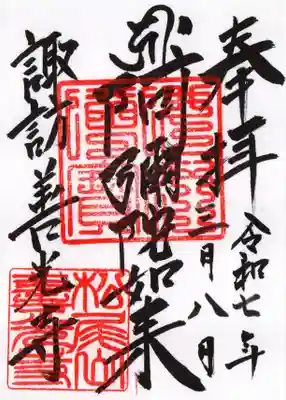 奉拝
令和七年
三月八日
阿彌陀如来
諏訪善光寺